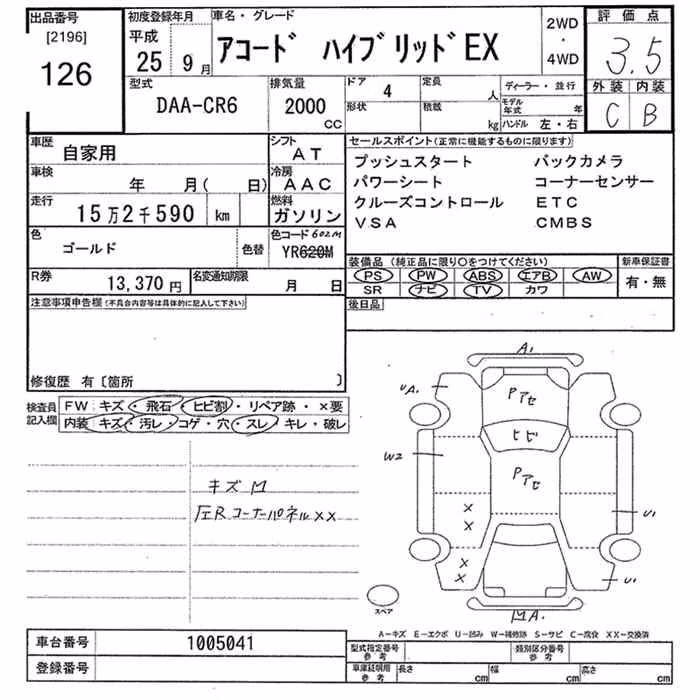 出品番号
[2196]
126
初度登録年月
平成
25年
9月
車名・グレード
アコード ハイブリッドEX
2WD
・
4WD
評価点
3.5
外装 内装
C B
型式
DAA-CR6
排気量
2000
CC
ドア 4
形状
定員 人
積載 kg
ディーラー・並行
モデル年式 年
ハンドル 左・右
車歴
自家用
シフト
AT
車検
年 月( 日)
冷房
AAC
走行
15万2千590 km
燃料
ガソリン
色
ゴールド
色替
色コード 602M
YR620M
R券
13,370 円
名変通知期限
月 日
セールスポイント(正常に機能するものに限ります)
プッシュスタート バックカメラ
パワーシート コーナーセンサー
クルーズコントロール ETC
VSA CMBS
装備品(純正品に限り○をつけてください)
新車保証書
PS PW ABS エアB AW
SR ナビ TV カワ
有・無
後日品
注意事項申告欄(不具合内容等は具体的に記入して下さい)
修復歴 有〔箇所 〕
検査員記入欄
FW キズ・飛石・ヒビ割・リペア跡・×要
内装 キズ・汚レ・コゲ・穴・スレ・キレ・破レ
キズM
圧Rコーナーパネル××
A1
UA1
Pアセ
ヒビ
W2
Pアセ
×
×
U1
×
×
U1
MA1
スペア
A―キズ E―エクボ U―凹み W―補修跡 S―サビ C―腐食 XX―交換済
車台番号 1005041
登録番号
型式指定番号
参考
類別区分番号
参考
車庫証明用
参考
長さ cm
幅 cm
高さ cm